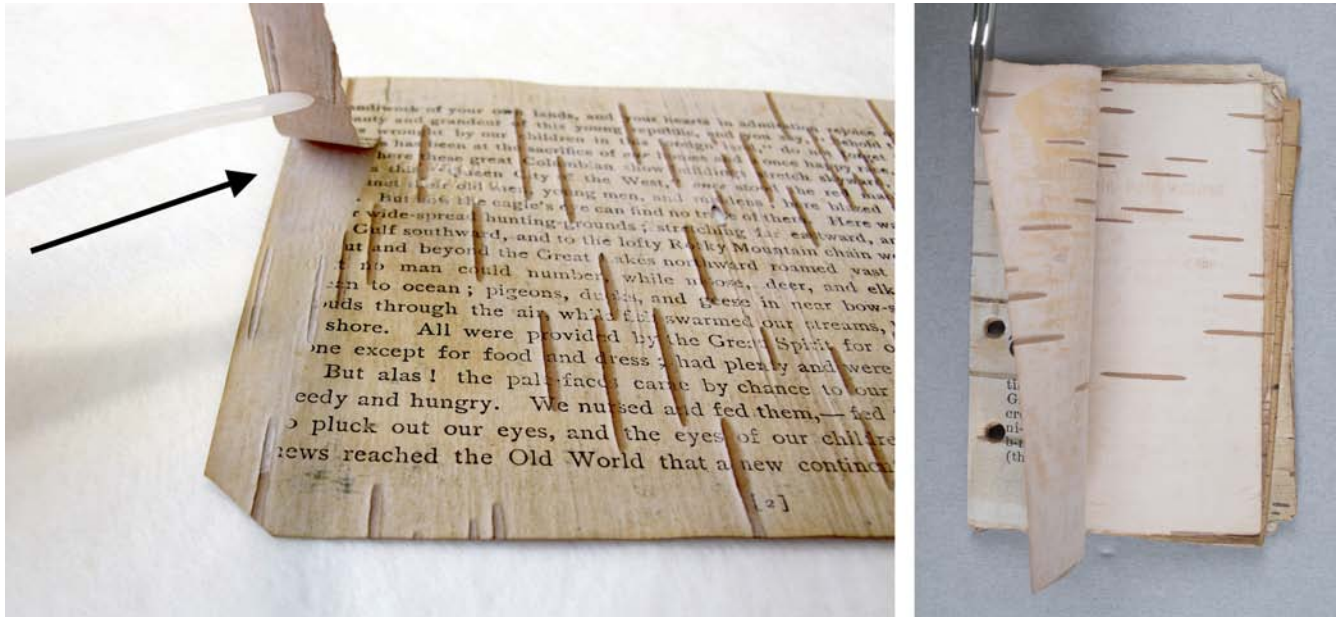 andiwork of your own lands, and your hearts in admiration rejoice
auty and grandeur of this young republic, and you say, "behold
wrought by our children in this foreign land," do not forget
has been at the sacrifice of our homes and a once happy race.
here these great Columbian show-buildings stretch skyward,
this "Queen City of the West," once stood the red
their old men, young men, and maidens; here blazed
But now the eagle's eye can find no trace of them. Here
wide-spread hunting-grounds; stretching far eastward,
Gulf southward, and to the lofty Rocky Mountain chain
ut and beyond the Great Lakes northward roamed vast
no man could number, while moose, deer, and elk
an to ocean; pigeons, ducks, and geese in near bow-s
uds through the air, while fish swarmed our streams,
shore. All were provided by the Great Spirit for o
one except for food and dress; had plenty and were
But alas! the pale-faces came by chance to our
eedy and hungry. We nursed and fed them,—fed
o pluck out our eyes, and the eyes of our childre
news reached the Old World that a new continent
[2]
th
G
cr
ni-
b-r
(th